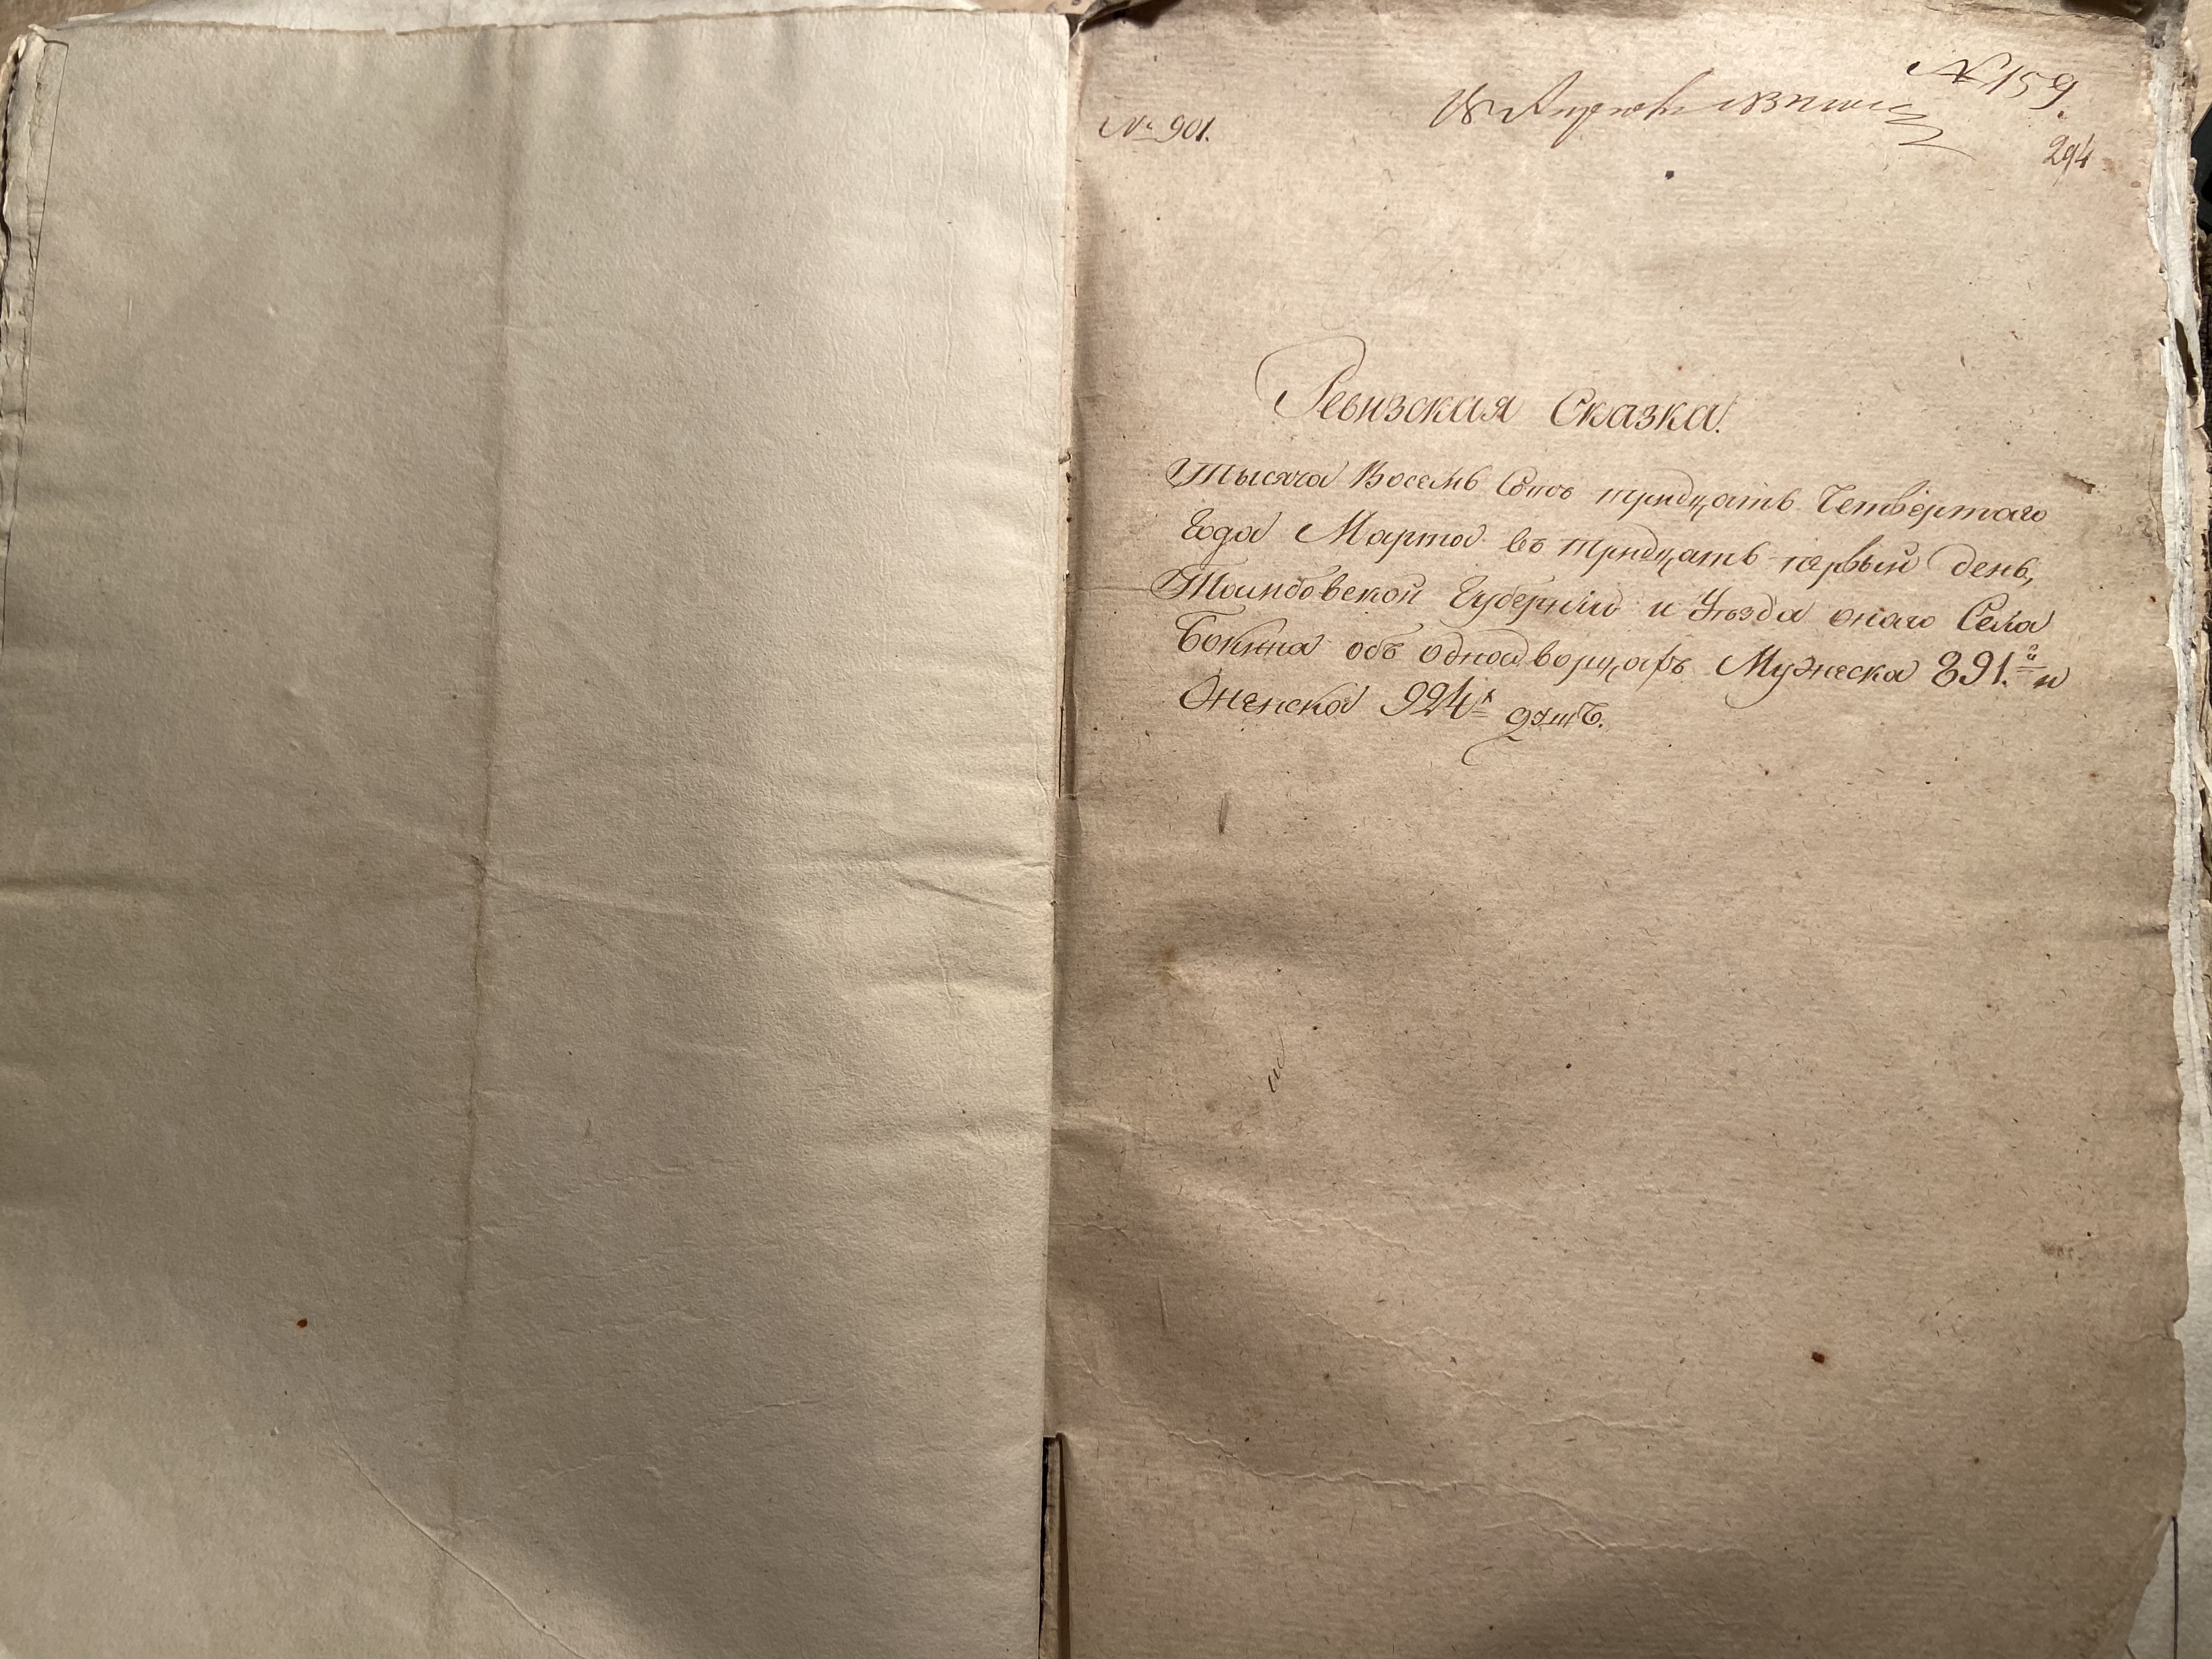 № 159.
№ 901.
294
Ревизская Сказка.
Тысяча Восемь Сотъ тридцать Четвертаго
Года Марта въ тридцать первый день,
Тамбовской Губерніи и Уѣзда онаго Села
Бокина объ однодворцахъ Мужеска 891.й и
Женска 924х душъ.